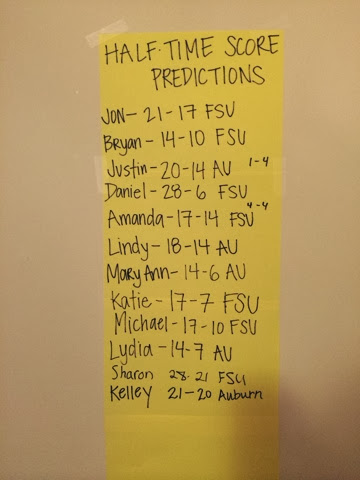 HALF-TIME SCORE
PREDICTIONS
JON- 21-17 FSU
Bryan- 14-10 FSU
Justin- 20-14 AU 1-4
Daniel- 28-6 FSU
Amanda- 17-14 FSU 4-4
Lindy- 18-14 AU
MaryAnn- 14-6 AU
Katie- 17-7 FSU
Michael- 17-10 FSU
Lydia- 14-7 AU
Sharon 28-21 FSU
Kelley 21-20 Auburn